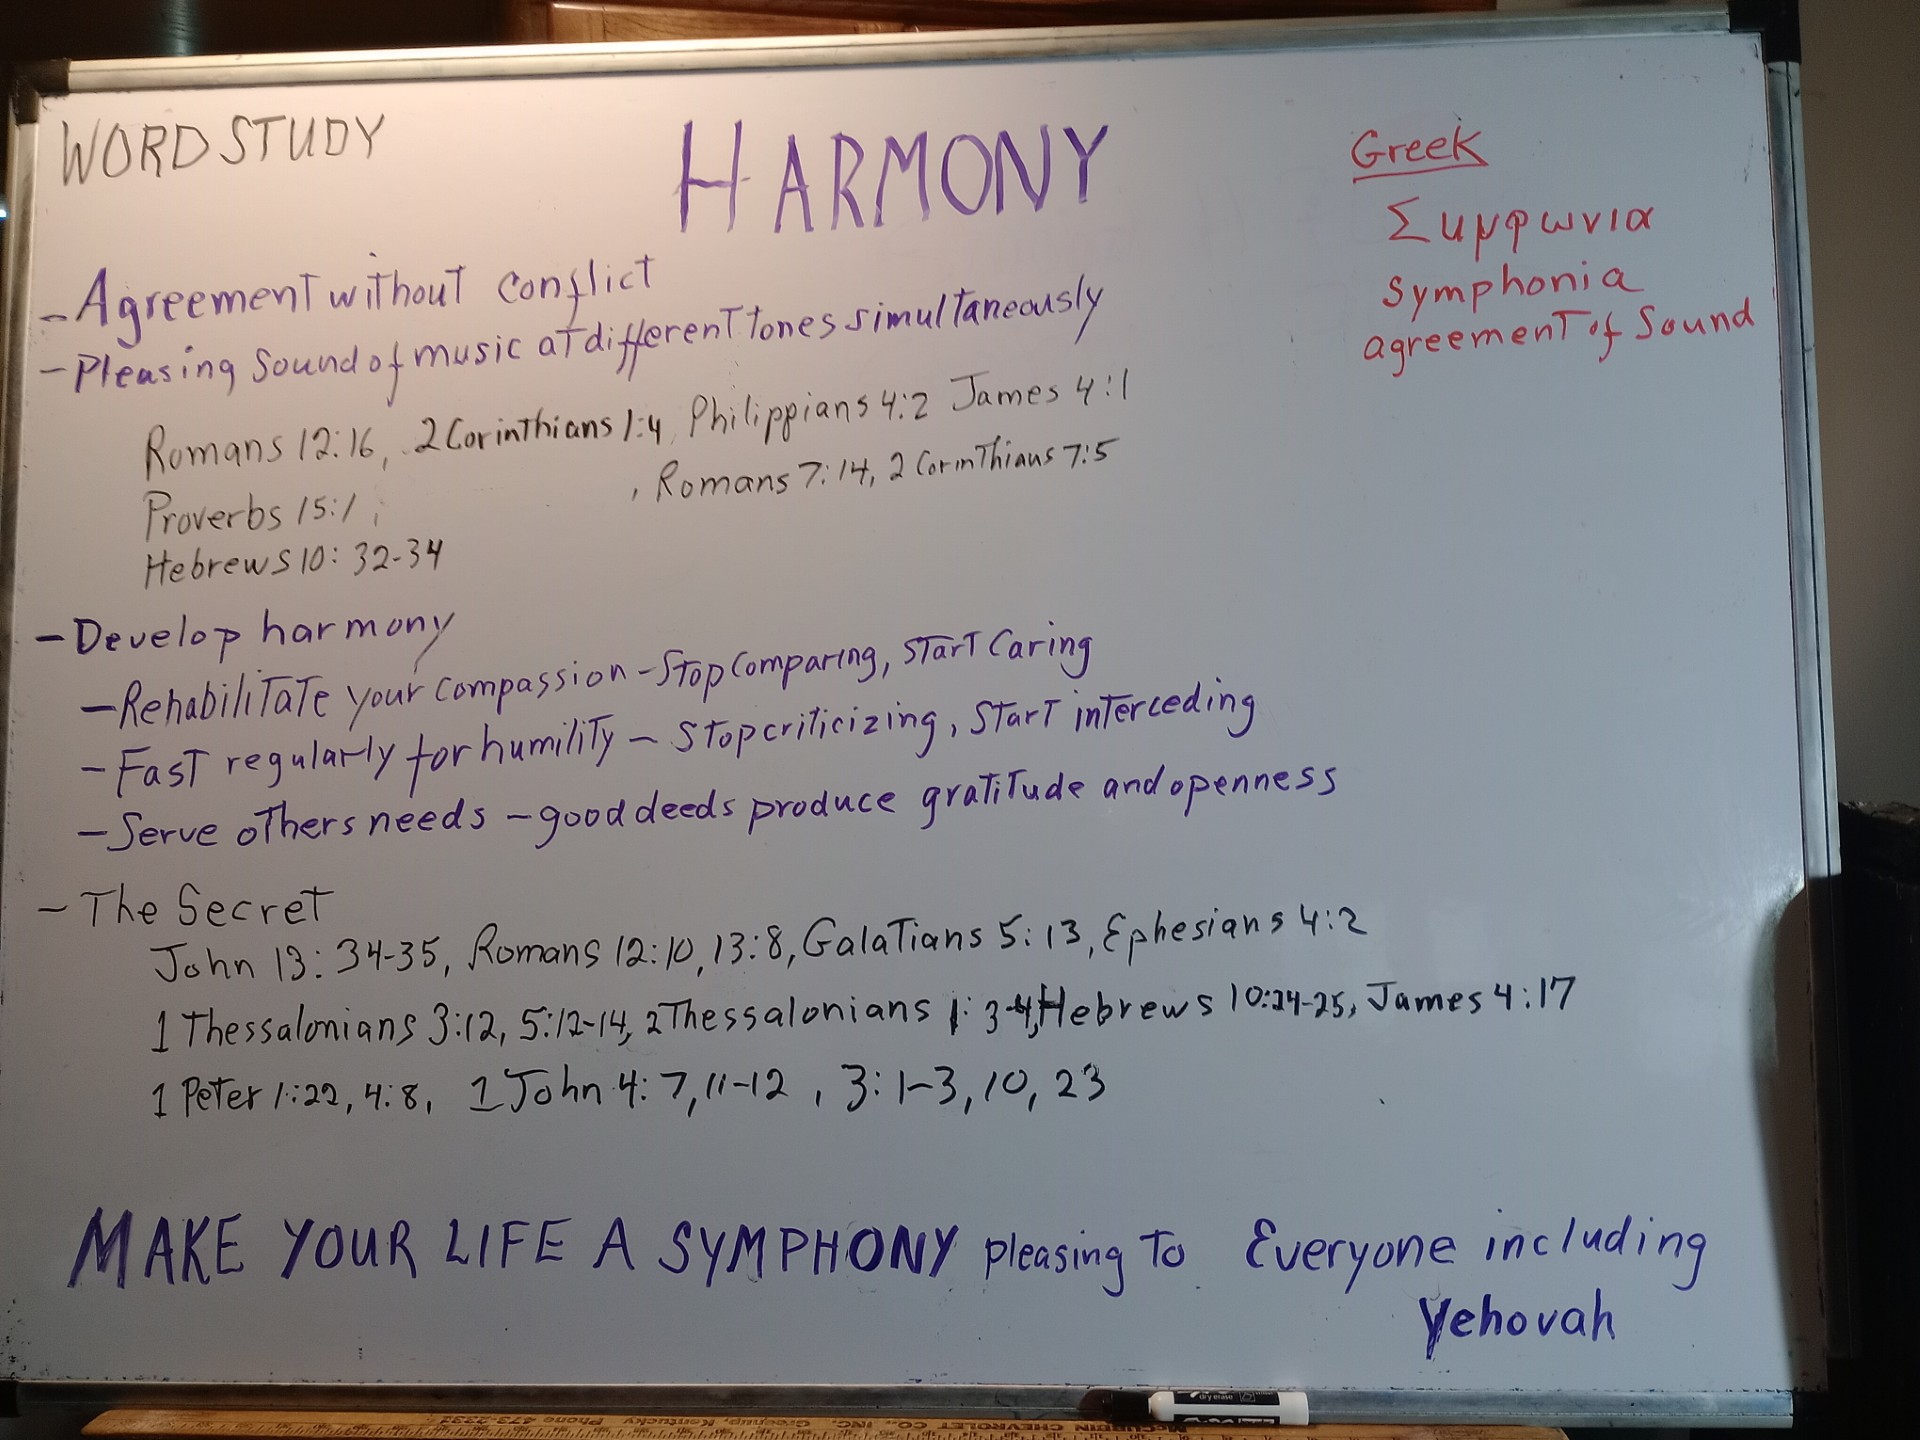 WORD STUDY
HARMONY
Greek
Συμφωνια
symphonia
agreement of Sound
- Agreement without conflict
- Pleasing Sound of music at different tones simultaneously
Romans 12:16, 2 Corinthians 1:4, Philippians 4:2 James 4:1
Proverbs 15:1, , Romans 7:14, 2 Corinthians 7:5
Hebrews 10: 32-34
- Develop harmony
- Rehabilitate your compassion - Stop Comparing, start Caring
- Fast regularly for humility - Stop criticizing, Start interceding
- Serve others needs - good deeds produce gratitude and openness
- The Secret
John 13: 34-35, Romans 12:10, 13:8, Galatians 5:13, Ephesians 4:2
1 Thessalonians 3:12, 5:12-14, 2 Thessalonians 1: 3-4, Hebrews 10:24-25, James 4:17
1 Peter 1:22, 4:8, 1 John 4: 7, 11-12, 3: 1-3, 10, 23
MAKE YOUR LIFE A SYMPHONY pleasing to Everyone including
Yehovah
dry erase
CHEVROLET CO., INC. Greenup, Kentucky Phone 473-7331